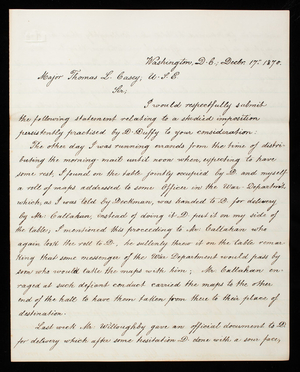 Washington, D.C; Decbr. 17th 1870.
Major Thomas L. Casey; U.S.E.
Sir;
I would respectfully submit
the following statement relating to a studied imposition
persistently practised by D. Duffy to your consideration:
The other day I was running errands from the time of distri-
buting the morning mail until noon when, expecting to have
some rest, I found on the table jointly occupied by D. and myself
a roll of maps addressed to some Officer in the War Department,
which, as I was told by Denkman, was handed to D. for delivery
by Mr. Callahan; instead of doing it D. put it on my side of
the table; I mentioned this proceeding to Mr. Callahan who
again took the roll to D., he sullenly threw it on the table remar-
king that some messenger of the War Department would pass by
soon who would take the maps with him; Mr. Callahan en-
raged at such defiant conduct carried the maps to the other
end of the hall, to have them taken from there to their place of
destination.
Last week Mr. Willoughby gave an official document to D.
for delivery which after some hesitation D. done with a sour face;